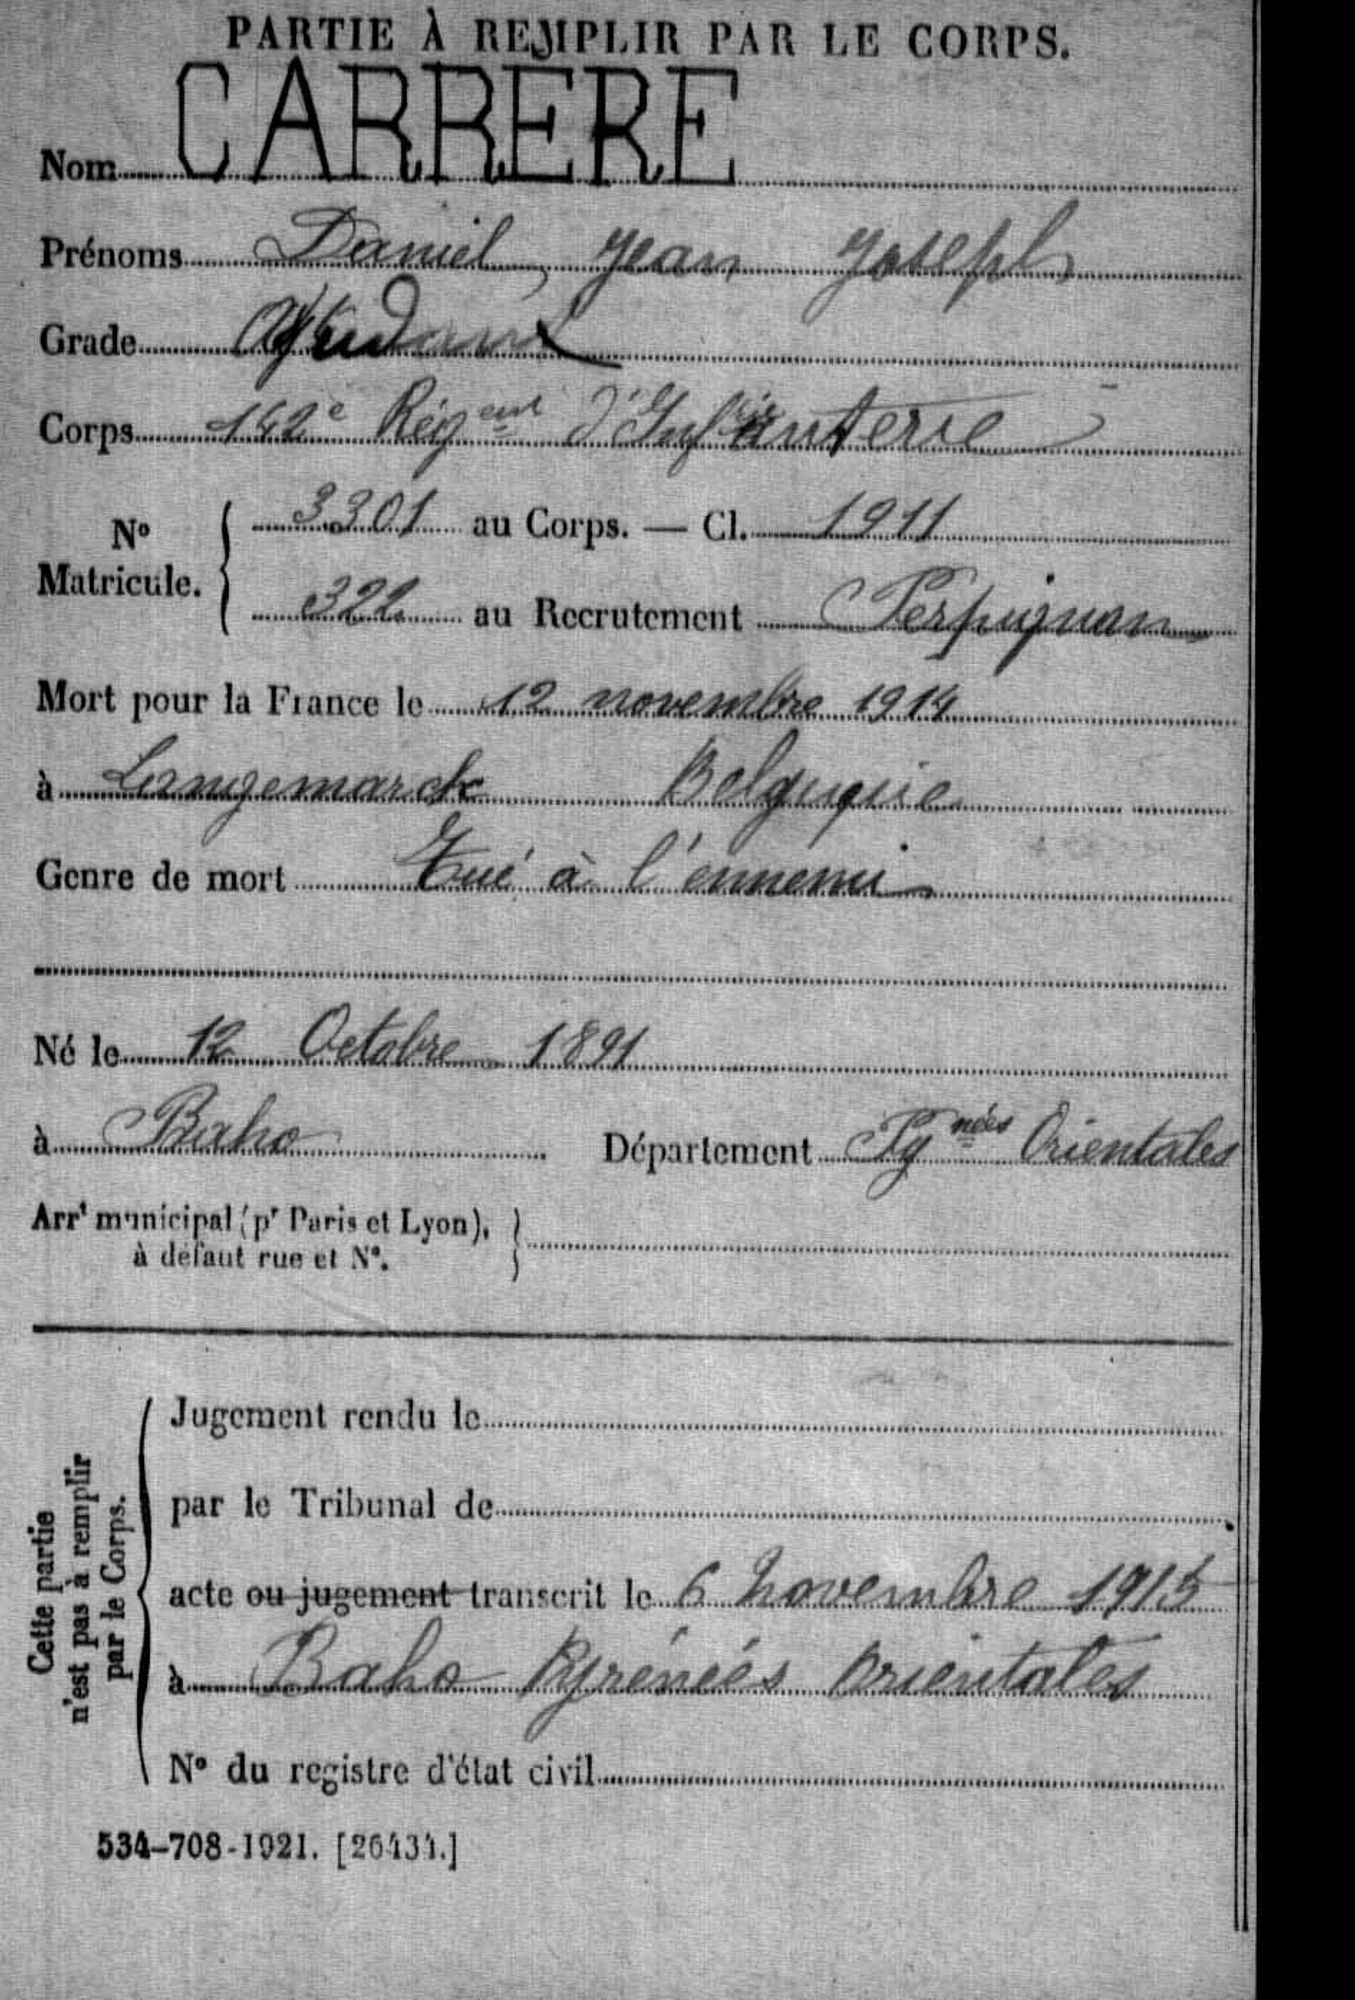 PARTIE À REMPLIR PAR LE CORPS.
Nom CARRERE
Prénoms Daniel, Jean Joseph
Grade Adjudant
Corps 142e Régent d'Infanterie
No Matricule. 3301 au Corps. — Cl. 1911
322 au Recrutement Perpignan
Mort pour la France le 12 novembre 1914
à Langemarck Belgique
Genre de mort Tué à l'ennemi
Né le 12 Octobre 1891
à Baho Département Pynées Orientales
Arrt municipal (pr Paris et Lyon),
à défaut rue et No.
Cette partie
n'est pas à remplir
par le Corps.
Jugement rendu le
par le Tribunal de
acte ou jugement transcrit le 6 Novembre 1915
à Baho Pyrénées Orientales
No du registre d'état civil
534-708-1921. [26434.]